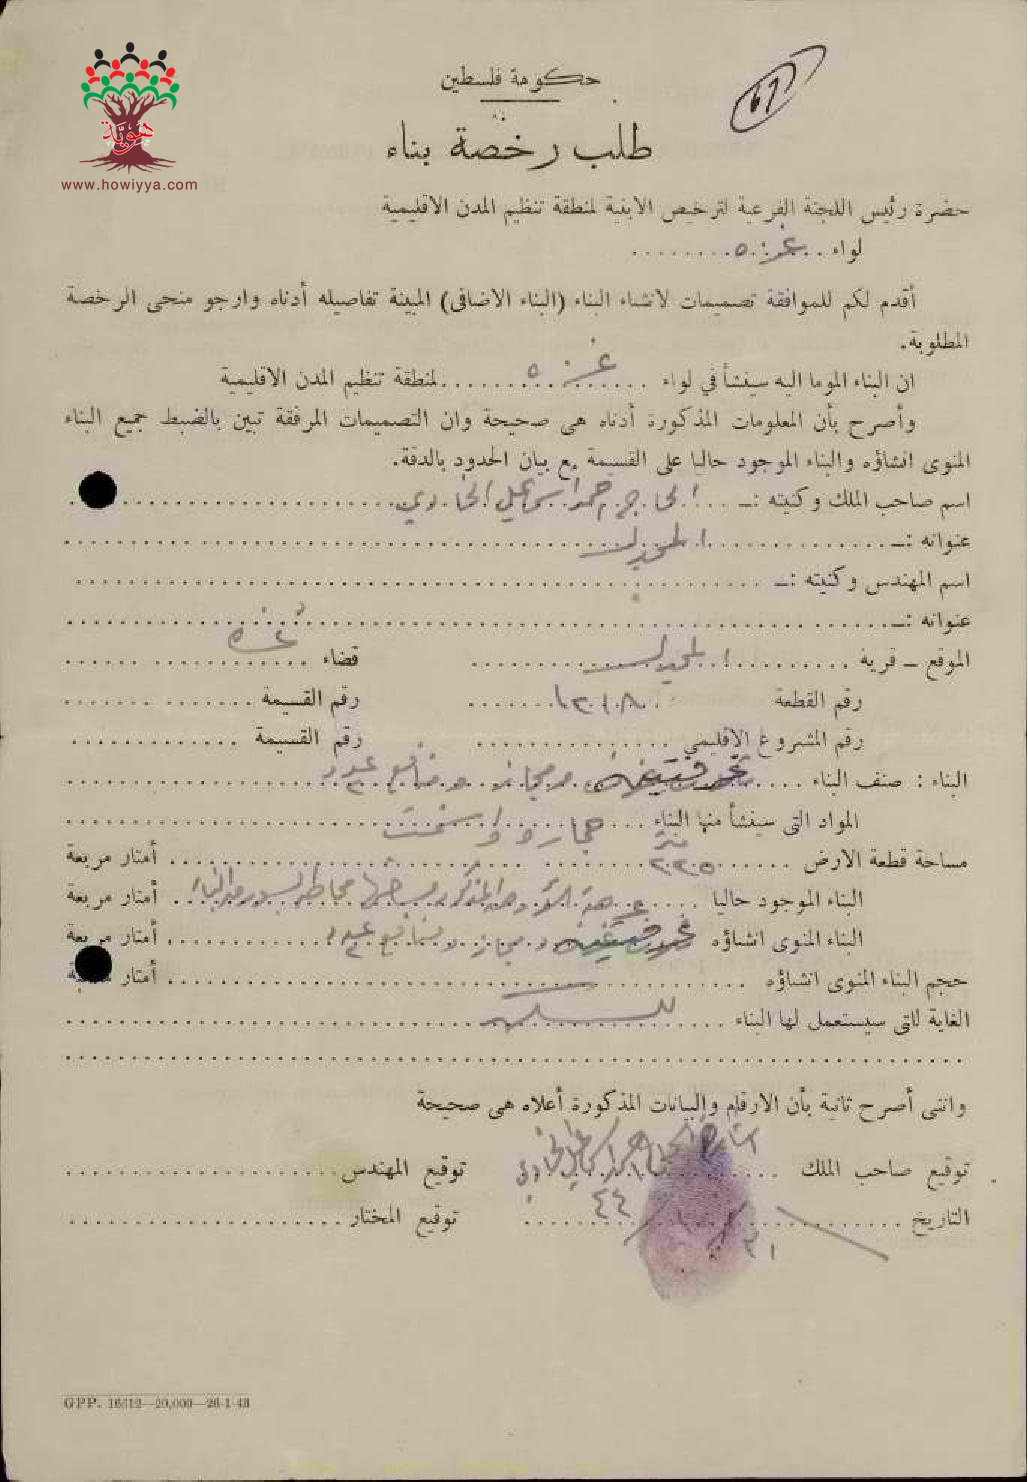 هويّة
www.howiyya.com
حكومة فلسطين
طلب رخصة بناء
حضرة رئيس اللجنة الفرعية لترخيص الابنية لمنطقة تنظيم المدن الاقليمية
لواء غزه
أقدم لكم للموافقة تصميمات لانشاء البناء (البناء الاضافى) المبينة تفاصيله أدناه وارجو منحى الرخصة
المطلوبة.
ان البناء الموما اليه سينشأ في لواء غزه لمنطقة تنظيم المدن الاقليمية
وأصرح بأن المعلومات المذكورة أدناه هى صحيحة وان التصميمات المرفقة تبين بالضبط جميع البناء
المنوى انشاؤه والبناء الموجود حاليا على القسيمة مع بيان الحدود بالدقة.
اسم صاحب الملك وكنيته :— الحاج حمد اسماعيل
عنوانه :— المجدل
اسم المهندس وكنيته :—
عنوانه :—
الموقع — قرية المجدل قضاء غزه
رقم القطعة رقم القسيمة
رقم المشروع الاقليمي رقم القسيمة
البناء : صنف البناء ومجاز ومنافع عدد
المواد التى سينشأ منها البناء حجاره واسمنت
مساحة قطعة الارض أمتار مربعة
البناء الموجود حاليا أمتار مربعة
البناء المنوى انشاؤه ومجاز ومنافع عدد أمتار مربعة
حجم البناء المنوى انشاؤه أمتار
الغاية للتى سيستعمل لها البناء للسكن
وانى أصرح ثانية بأن الارقام والبيانات المذكورة أعلاه هى صحيحة
توقيع صاحب الملك الحاج حمد اسماعيل توقيع المهندس
التاريخ توقيع المختار
GPP. 16612—20,000—26-1-43